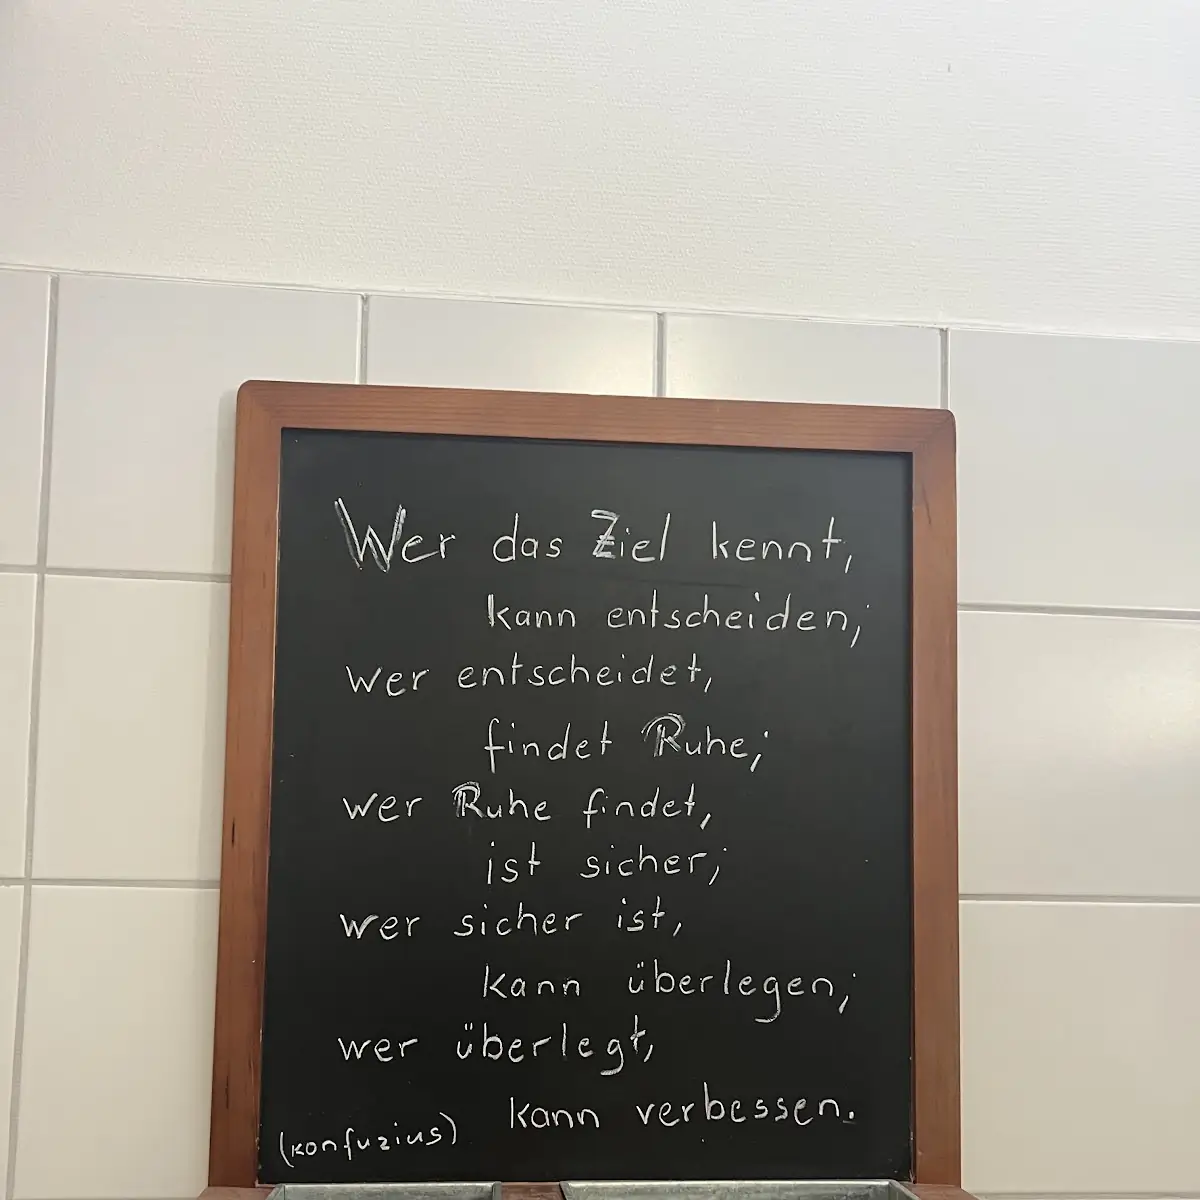 Wer das Ziel kennt,
kann entscheiden;
wer entscheidet,
findet Ruhe;
wer Ruhe findet,
ist sicher;
wer sicher ist,
kann überlegen;
wer überlegt,
kann verbessen.
(konfuzius)